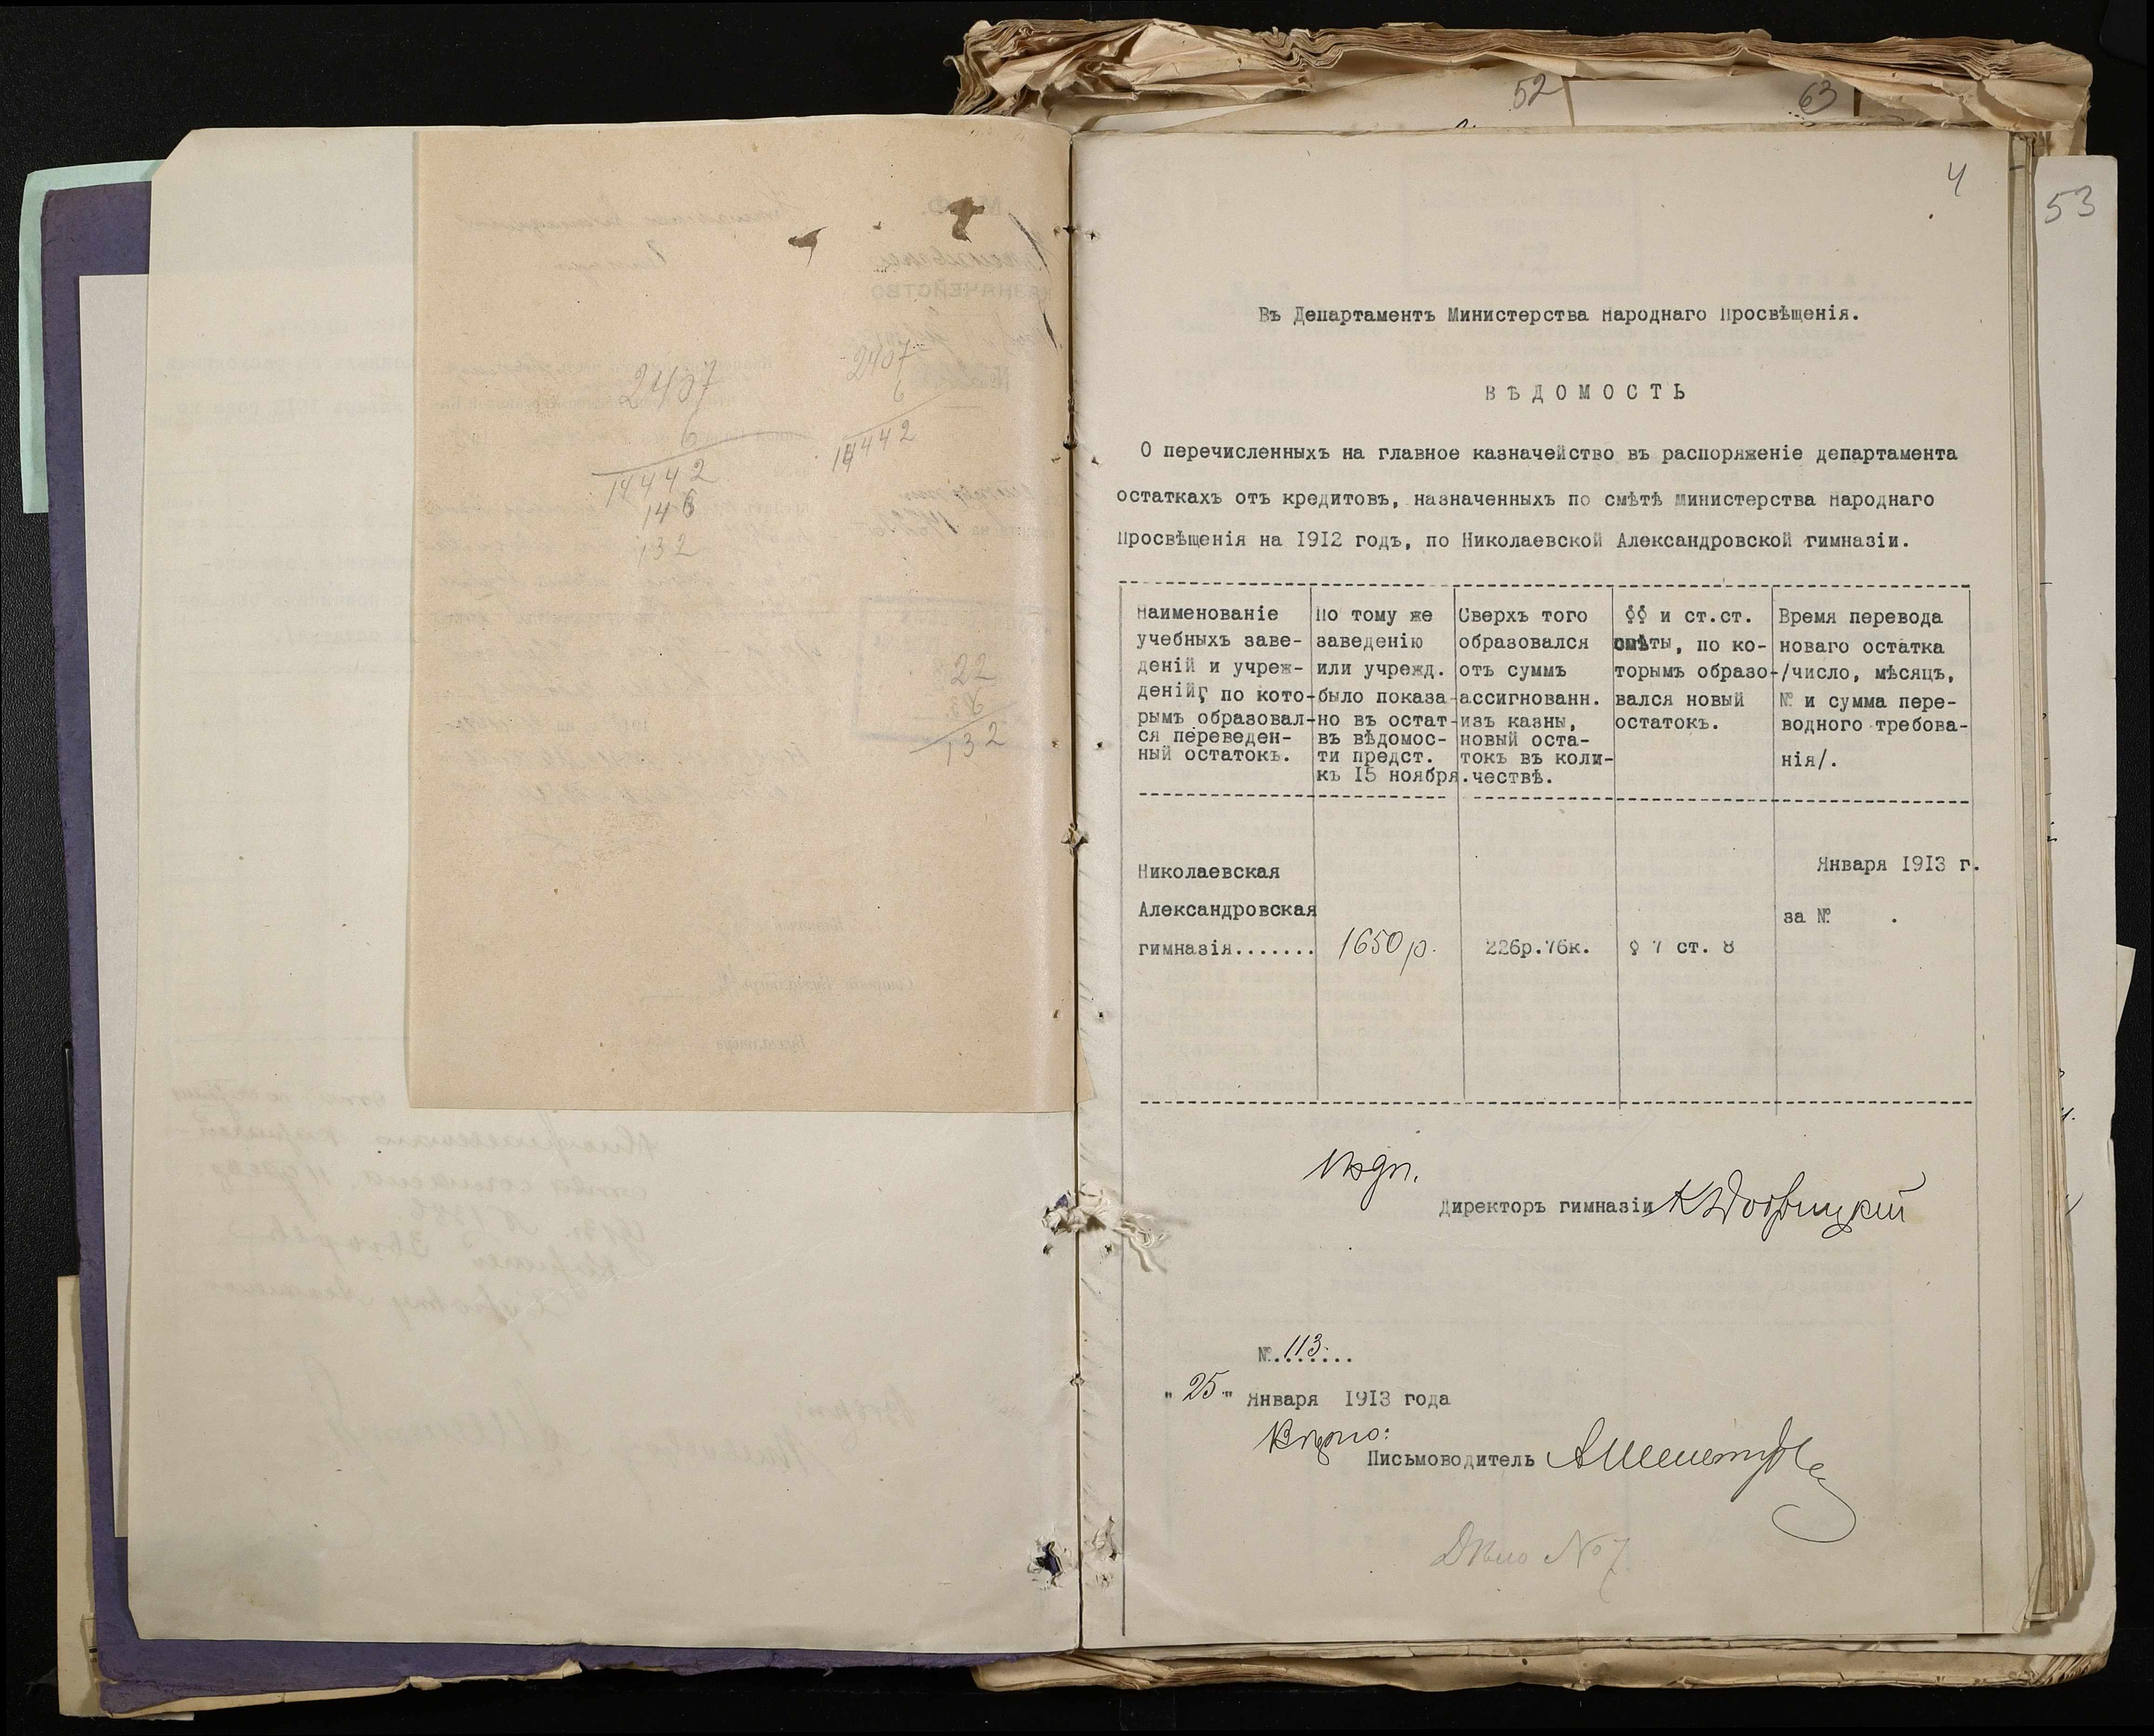 52
63
53
4
2407
6
14442
146
132
2407
6
14442
22
6
132
Въ Департаментъ Министерства Народнаго Просвѣщенія.
ВѢДОМОСТЬ
О перечисленныхъ на главное казначейство въ распоряженіе департамента
остаткахъ отъ кредитовъ, назначенныхъ по смѣтѣ Министерства Народнаго
Просвѣщенія на 1912 годъ, по Николаевской Александровской гимназіи.
Наименованіе
учебныхъ заве-
деній и учреж-
деній, по кото-
рымъ образовал-
ся переведен-
ный остатокъ.
По тому же
заведенію
или учрежд.
было показа-
но въ остат-
въ вѣдомос-
ти предст.
къ 15 ноября.
Сверхъ того
образовался
отъ суммъ
ассигнованн.
изъ казны,
новый оста-
токъ въ коли-
чествѣ.
§§ и ст.ст.
смѣты, по ко-
торымъ образо-
вался новый
остатокъ.
Время перевода
новаго остатка
/число, мѣсяцъ,
№ и сумма пере-
водного требова-
нія/.
Николаевская
Александровская
гимназія.......
1650 р.
226р.76к.
§ 7 ст. 8
Января 1913 г.
за № .
Директоръ гимназіи
№.113.......
"25" Января 1913 года
Вѣрно:
Письмоводитель
Дѣло № 7